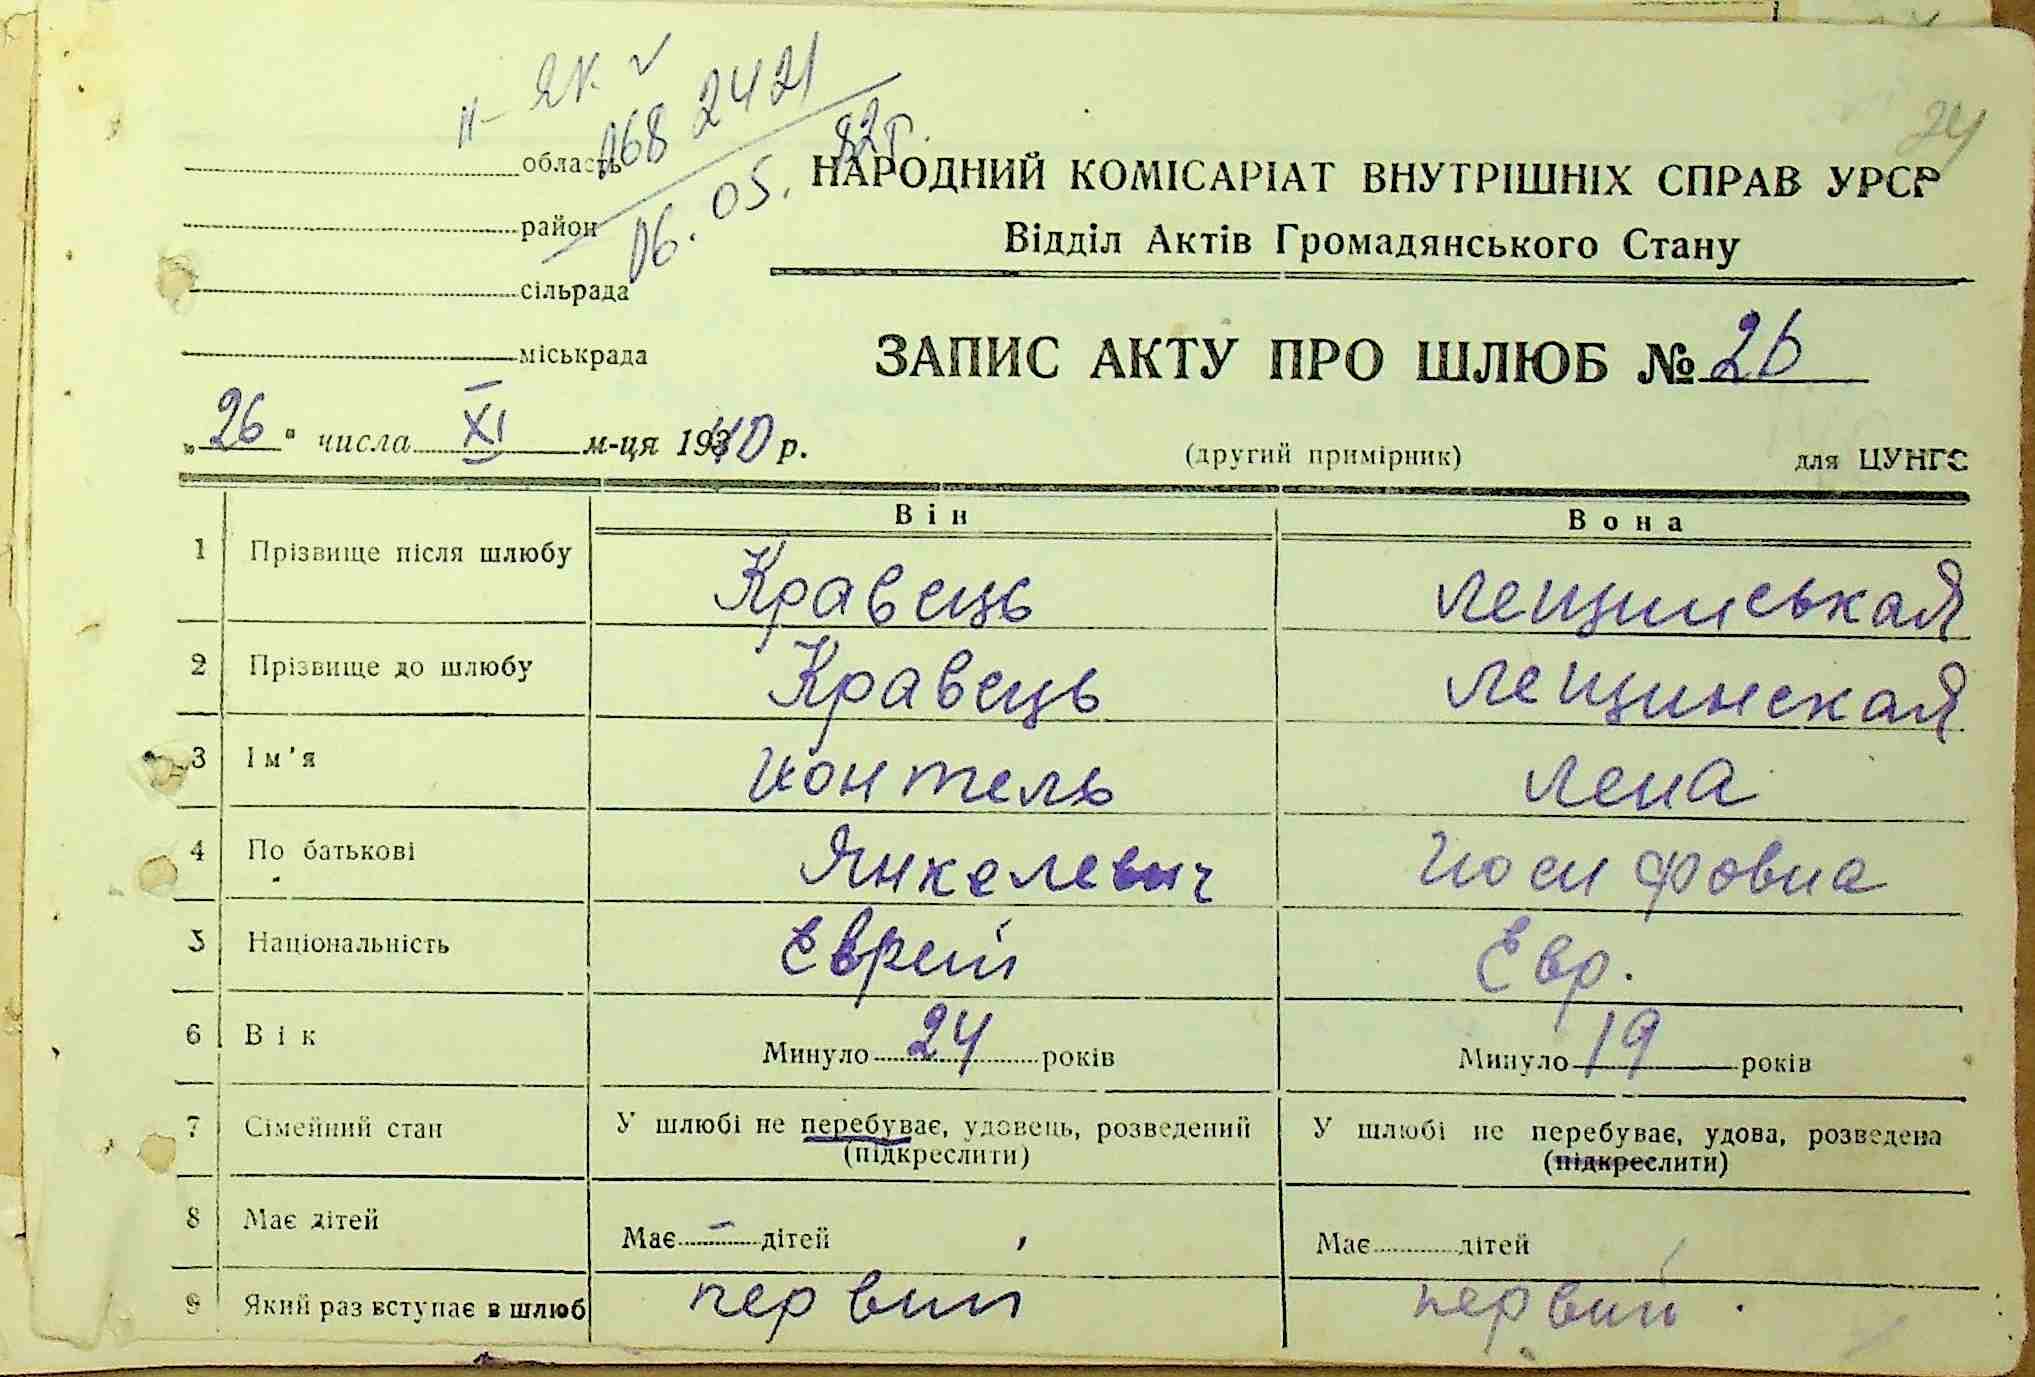 II - ЯК. ✓
068 2421
06. 05. 82г.
24
область
район
сільрада
міськрада
НАРОДНИЙ КОМІСАРІАТ ВНУТРІШНІХ СПРАВ УРСР
Відділ Актів Громадянського Стану
ЗАПИС АКТУ ПРО ШЛЮБ № 26
„26" числа XI м-ця 1940 р.
(другий примірник) для ЦУНГС
Він Вона
1 Прізвище після шлюбу Кравець Лещинськая
2 Прізвище до шлюбу Кравець Лещинская
3 Ім'я Йонтель Лена
4 По батькові Янкелевич Иосифовна
5 Національність Еврей Евр.
6 Вік Минуло 24 років Минуло 19 років
7 Сімейний стан У шлюбі не перебуває, удовець, розведений У шлюбі не перебуває, удова, розведена
(підкреслити) (підкреслити)
8 Має дітей Має – дітей Має дітей
9 Який раз вступає в шлюб первий первий